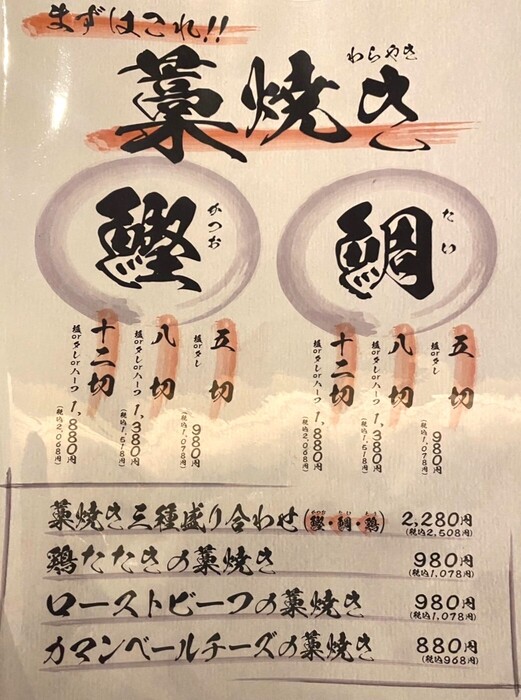 まずはこれ!!
わらやき
藁焼き
鰹
かつお
五切
塩orタレ
980円
(税込1,078円)
八切
塩orタレorハーフ
1,380円
(税込1,518円)
十二切
塩orタレorハーフ
1,880円
(税込2,068円)
鯛
たい
五切
塩orタレ
980円
(税込1,078円)
八切
塩orタレorハーフ
1,380円
(税込1,518円)
十二切
塩orタレorハーフ
1,880円
(税込2,068円)
藁焼き三種盛り合わせ(鰹・鯛・鶏) 2,280円
(税込2,508円)
鶏たたきの藁焼き 980円
(税込1,078円)
ローストビーフの藁焼き 980円
(税込1,078円)
カマンベールチーズの藁焼き 880円
(税込968円)